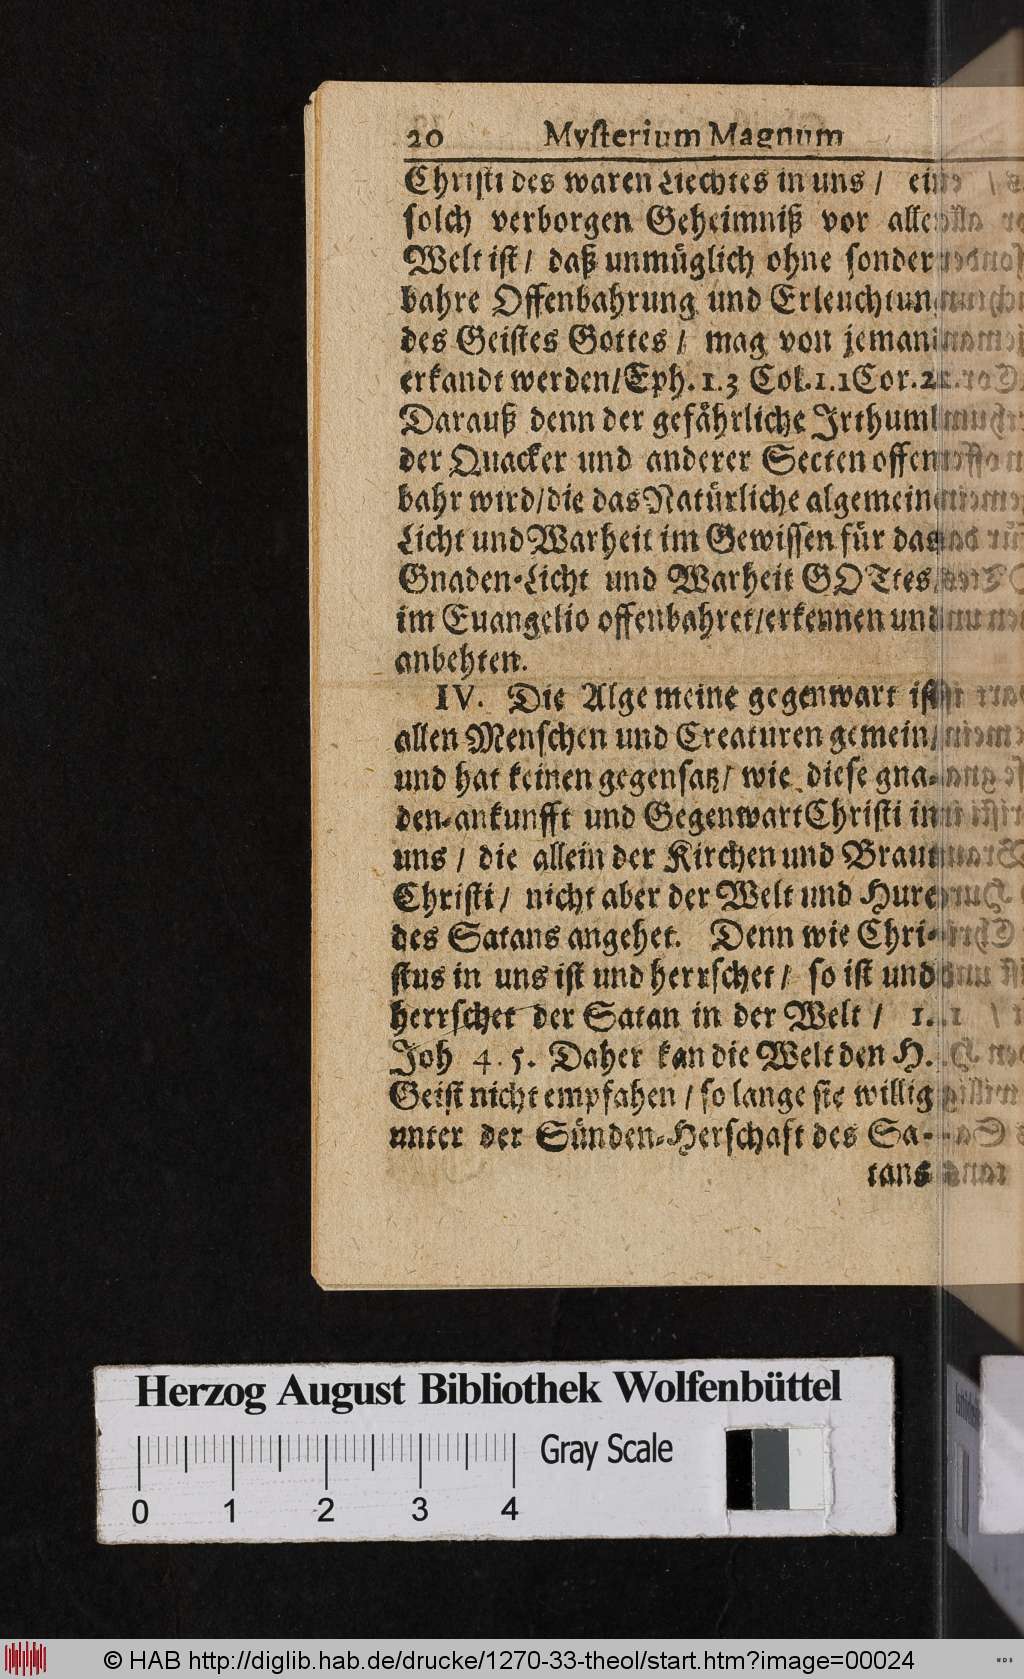 20 Mysterium Magnum
Christi des waren Liechtes in uns / ein
solch verborgen Geheimniß vor aller
Welt ist / daß unmüglich ohne sonder
bahre Offenbahrung und Erleuchtung
des Geistes Gottes / mag von jemand
erkandt werden / Eph. 1. 3 Col. 1. 1 Cor. 2.
Darauß denn der gefährliche Irthum
der Quacker und anderer Secten offen
bahr wird / die das Natürliche algemeine
Licht und Warheit im Gewissen für das
Gnaden-Licht und Warheit GOTtes /
im Euangelio offenbahret / erkennen und
anbehten.
IV. Die Algemeine gegenwart ist
allen Menschen und Creaturen gemein /
und hat keinen gegensatz / wie diese gna-
den-ankunfft und Gegenwart Christi in
uns / die allein der Kirchen und Braut
Christi / nicht aber der Welt und Hure
des Satans angehet. Denn wie Chri-
stus in uns ist und herrschet / so ist und
herrschet der Satan in der Welt / 1.
Joh 4. 5. Daher kan die Welt den H.
Geist nicht empfahen / so lange sie willig
unter der Sünden-Herschaft des Sa-
tans
Herzog August Bibliothek Wolfenbüttel
Gray Scale
0 1 2 3 4
© HAB http://diglib.hab.de/drucke/1270-33-theol/start.htm?image=00024